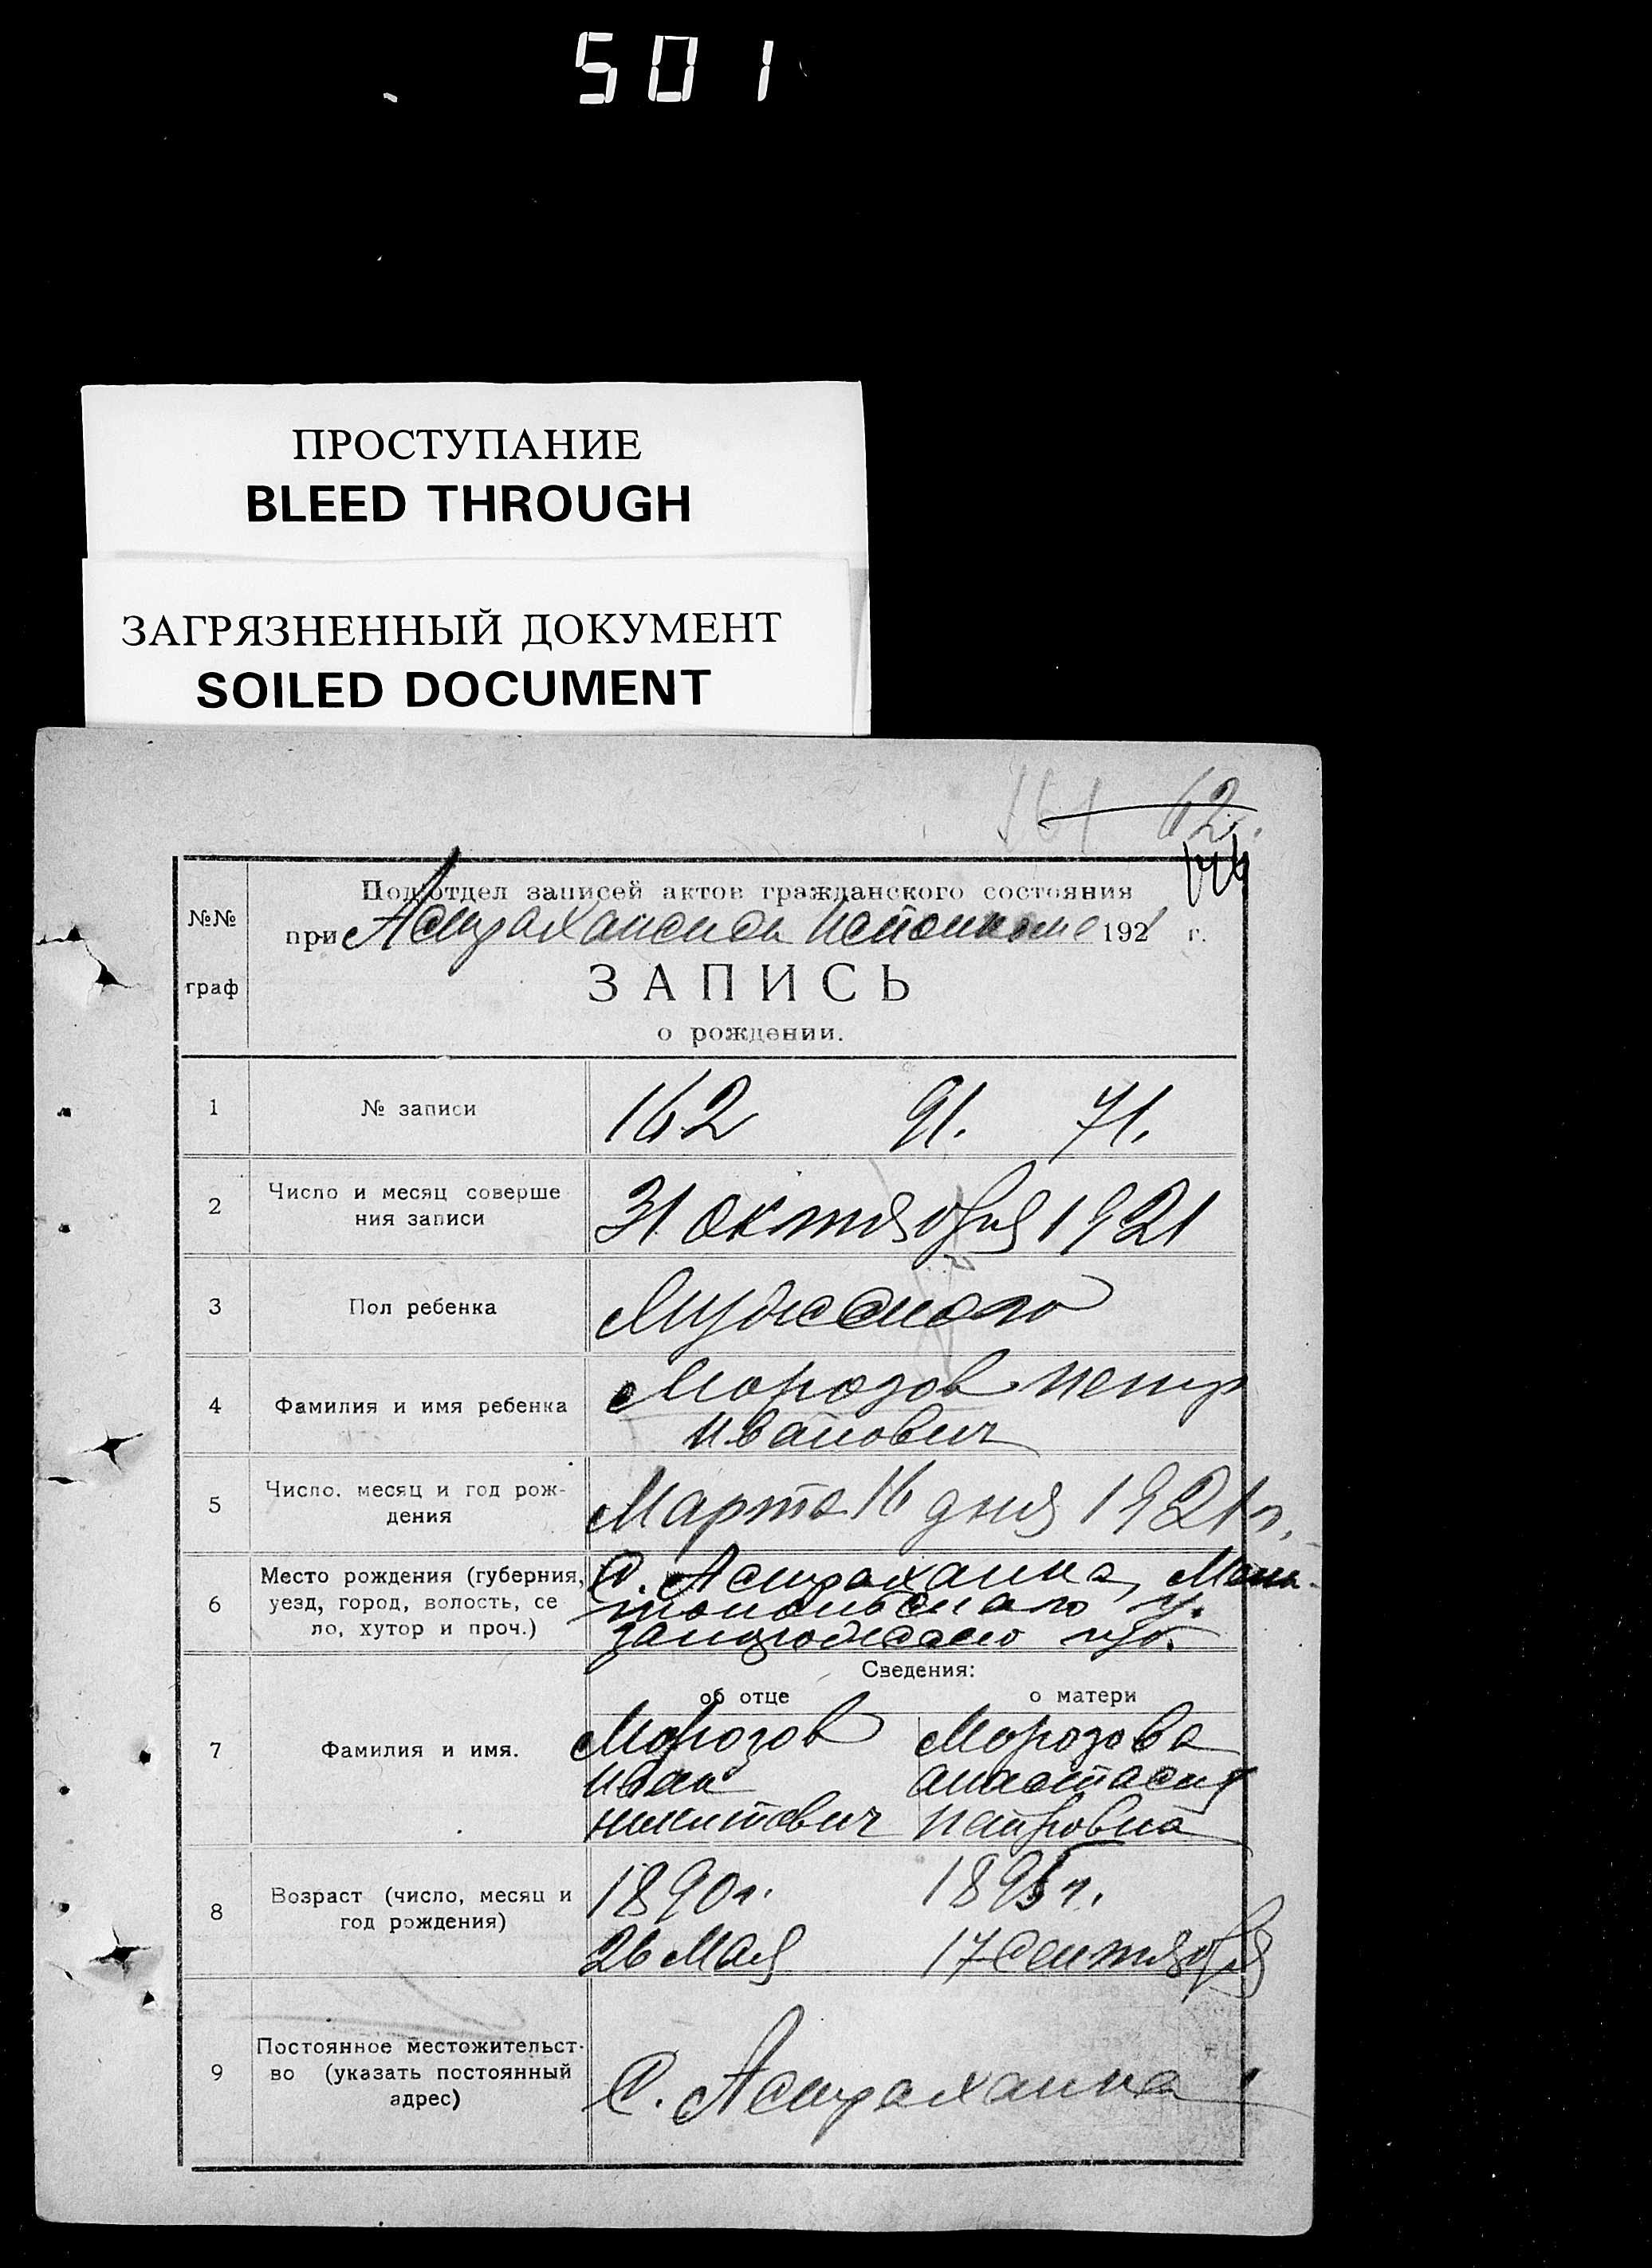 501
ПРОСТУПАНИЕ
BLEED THROUGH
ЗАГРЯЗНЕННЫЙ ДОКУМЕНТ
SOILED DOCUMENT
161 62.
№№
граф
Подотдел записей актов гражданского состояния
при Астраханском Исполкоме 1921 г.
ЗАПИСЬ
о рождении.
1
№ записи
162 91. 71.
2
Число и месяц соверше
ния записи
31 октября 1921
3
Пол ребенка
Мужского
4
Фамилия и имя ребенка
Морозов Петр
Иванович
5
Число. месяц и год рож-
дения
Марта 16 дня 1921 г.
6
Место рождения (губерния,
уезд, город, волость, се
ло, хутор и проч.)
С. Астраханка, Мели-
топольскаго у.
запорожскаго губ.
Сведения:
об отце
о матери
7
Фамилия и имя.
Морозов
Иван
Никитович
Морозова
Анастасия
Петровна
8
Возраст (число, месяц и
год рождения)
1890 г.
26 Мая
1895 г.
17 сентября
9
Постоянное местожительст-
во (указать постоянный
адрес)
С. Астраханка